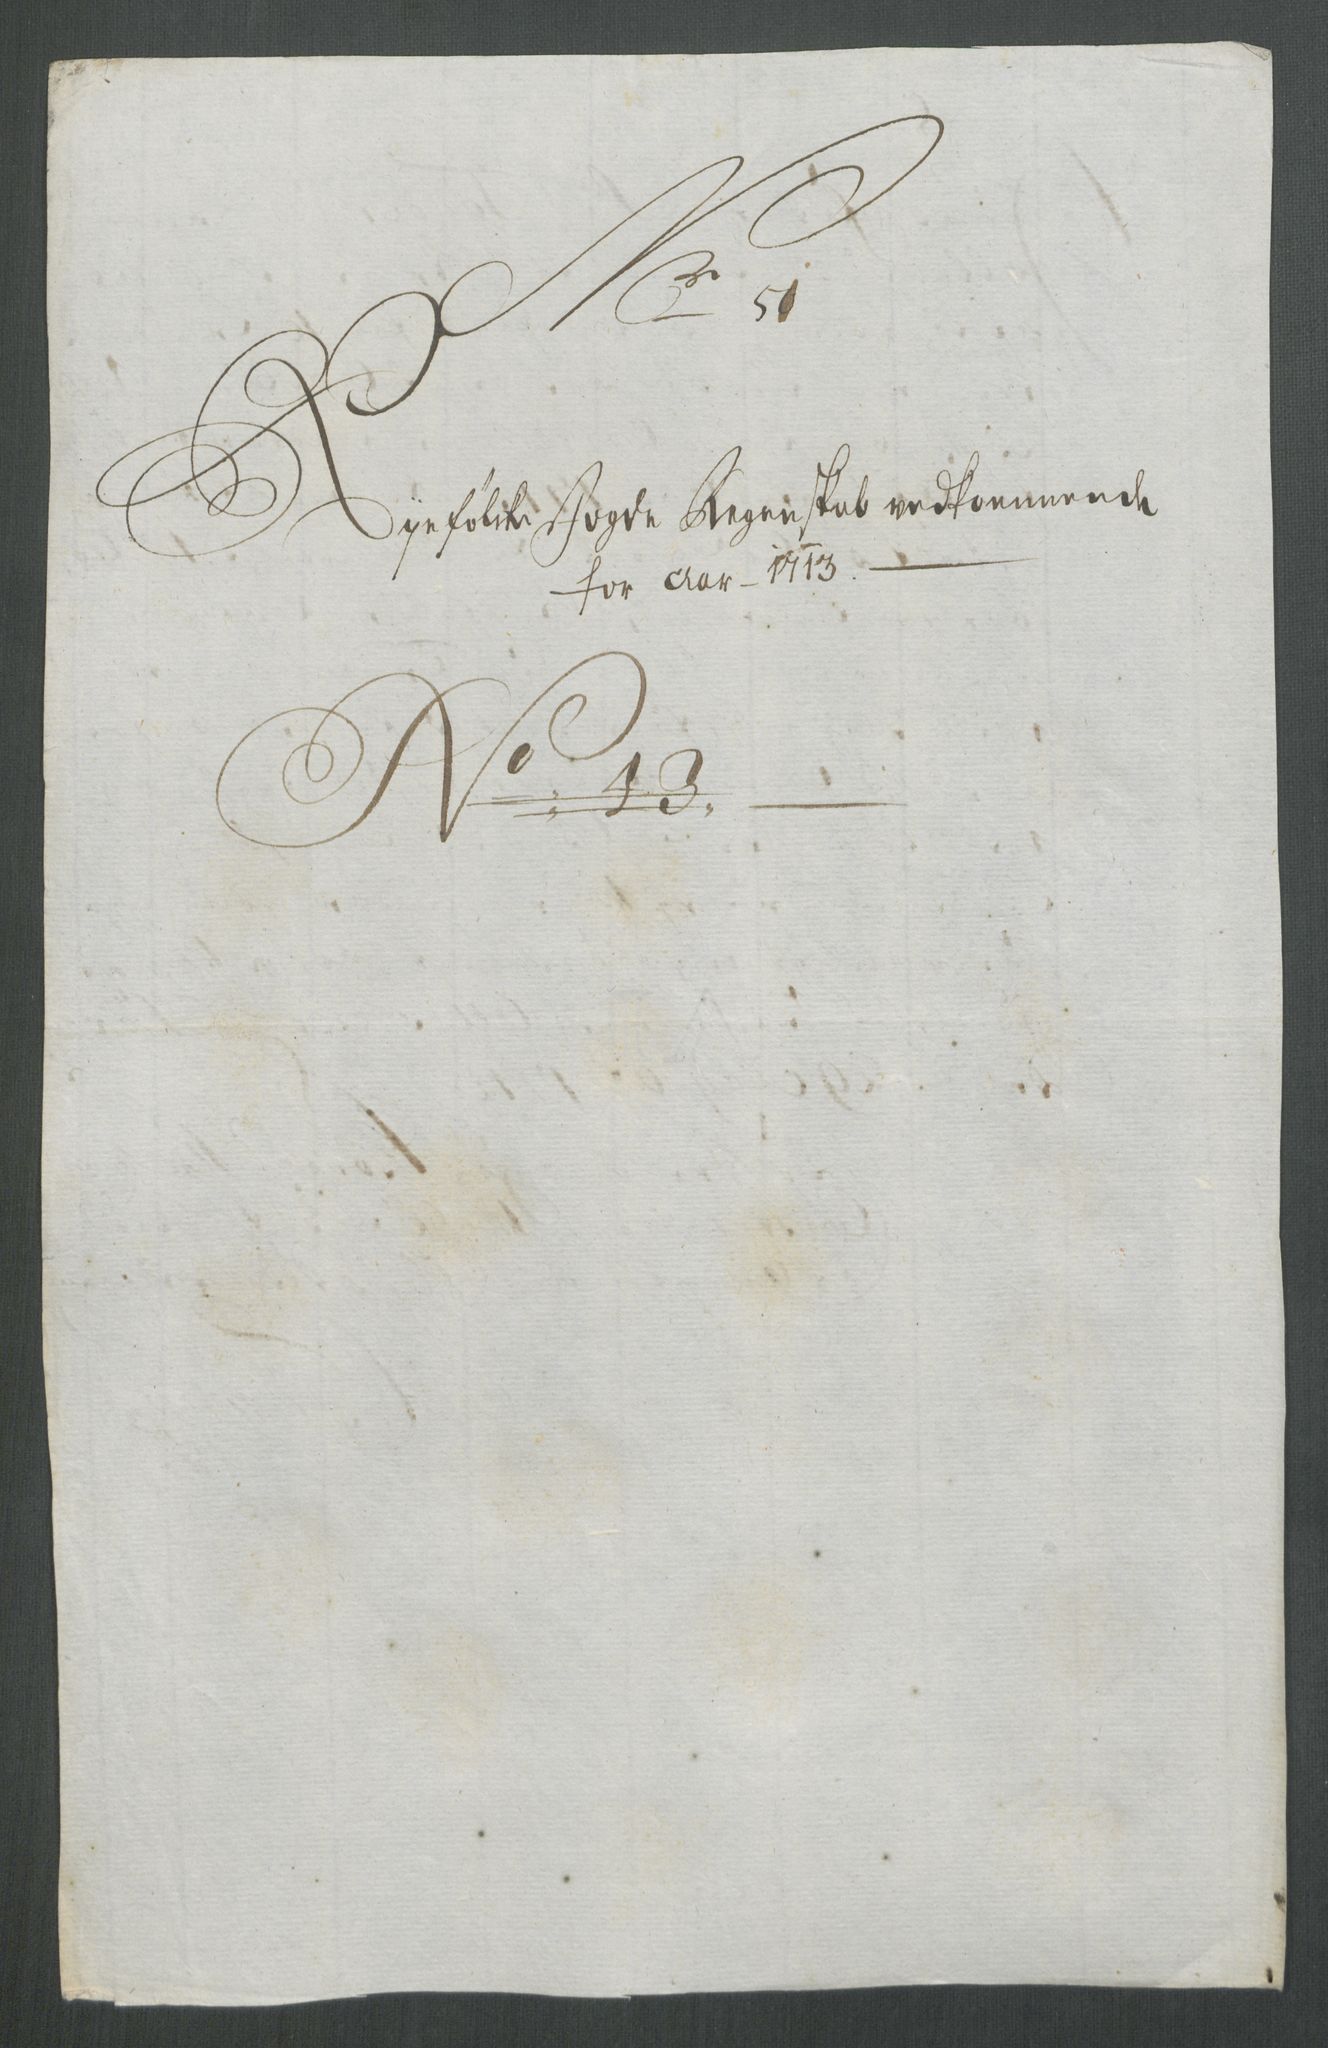 Nr 51
Ryefölcke Fogde Regenskab vedkommende
for Aar - 1713.
No: 43.